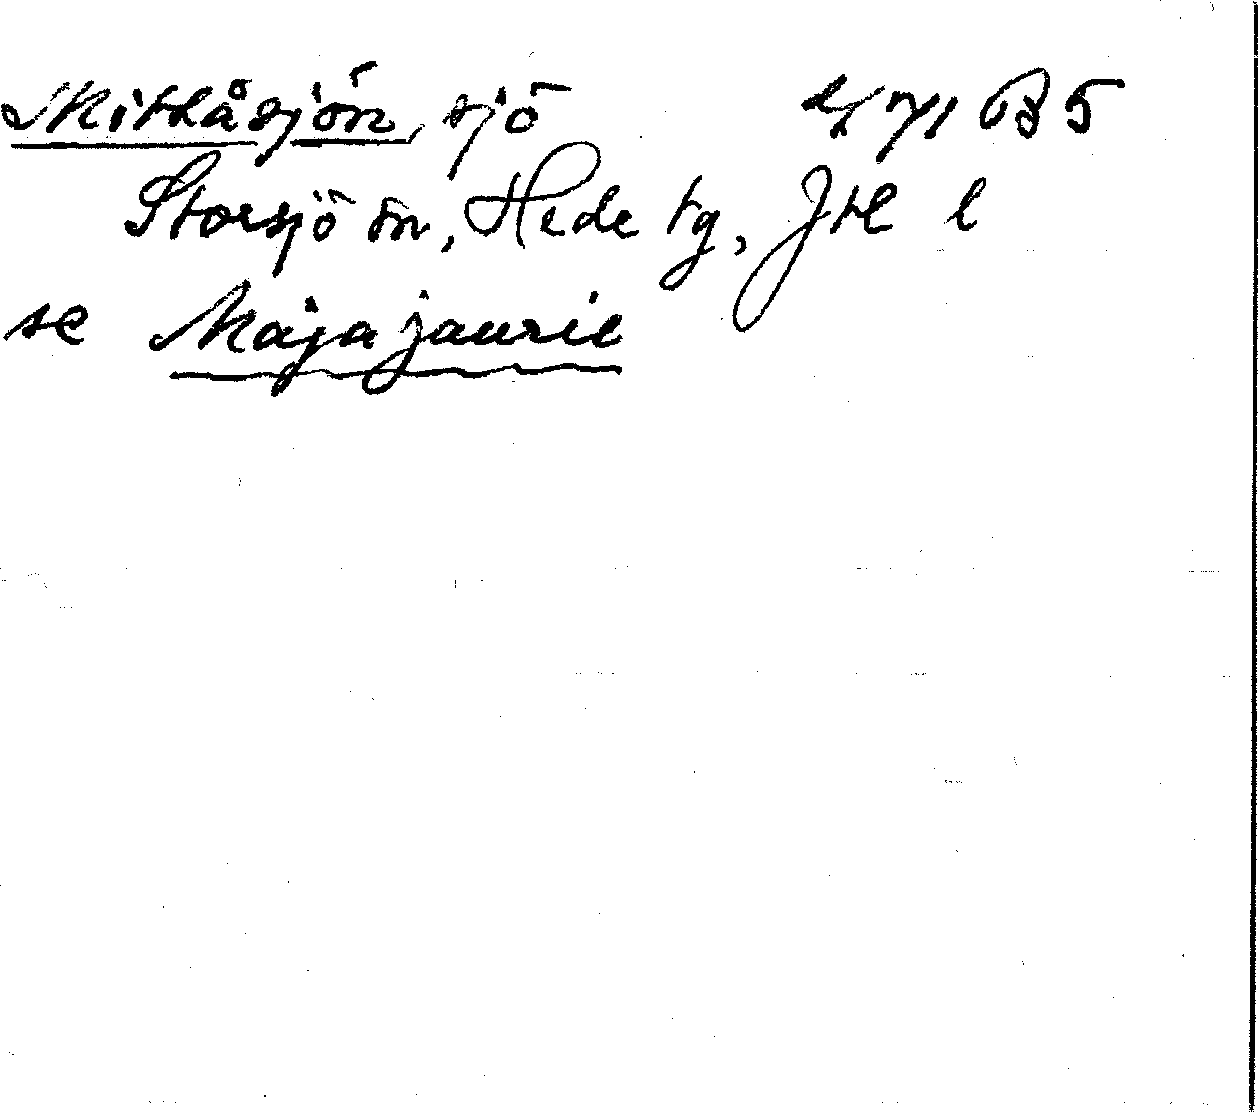 Mittåsjön, sjö 71 B5
Storsjö sn, Hede tg, Jtl l
se Majajaurie